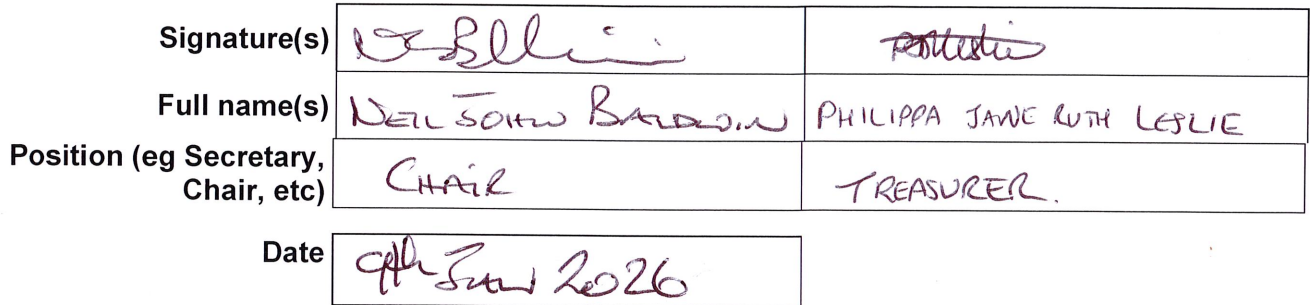 Signature(s)
Full name(s) NEIL JOHN BALDWIN PHILIPPA JANE RUTH LESLIE
Position (eg Secretary,
Chair, etc) CHAIR TREASURER.
Date 9th 2026